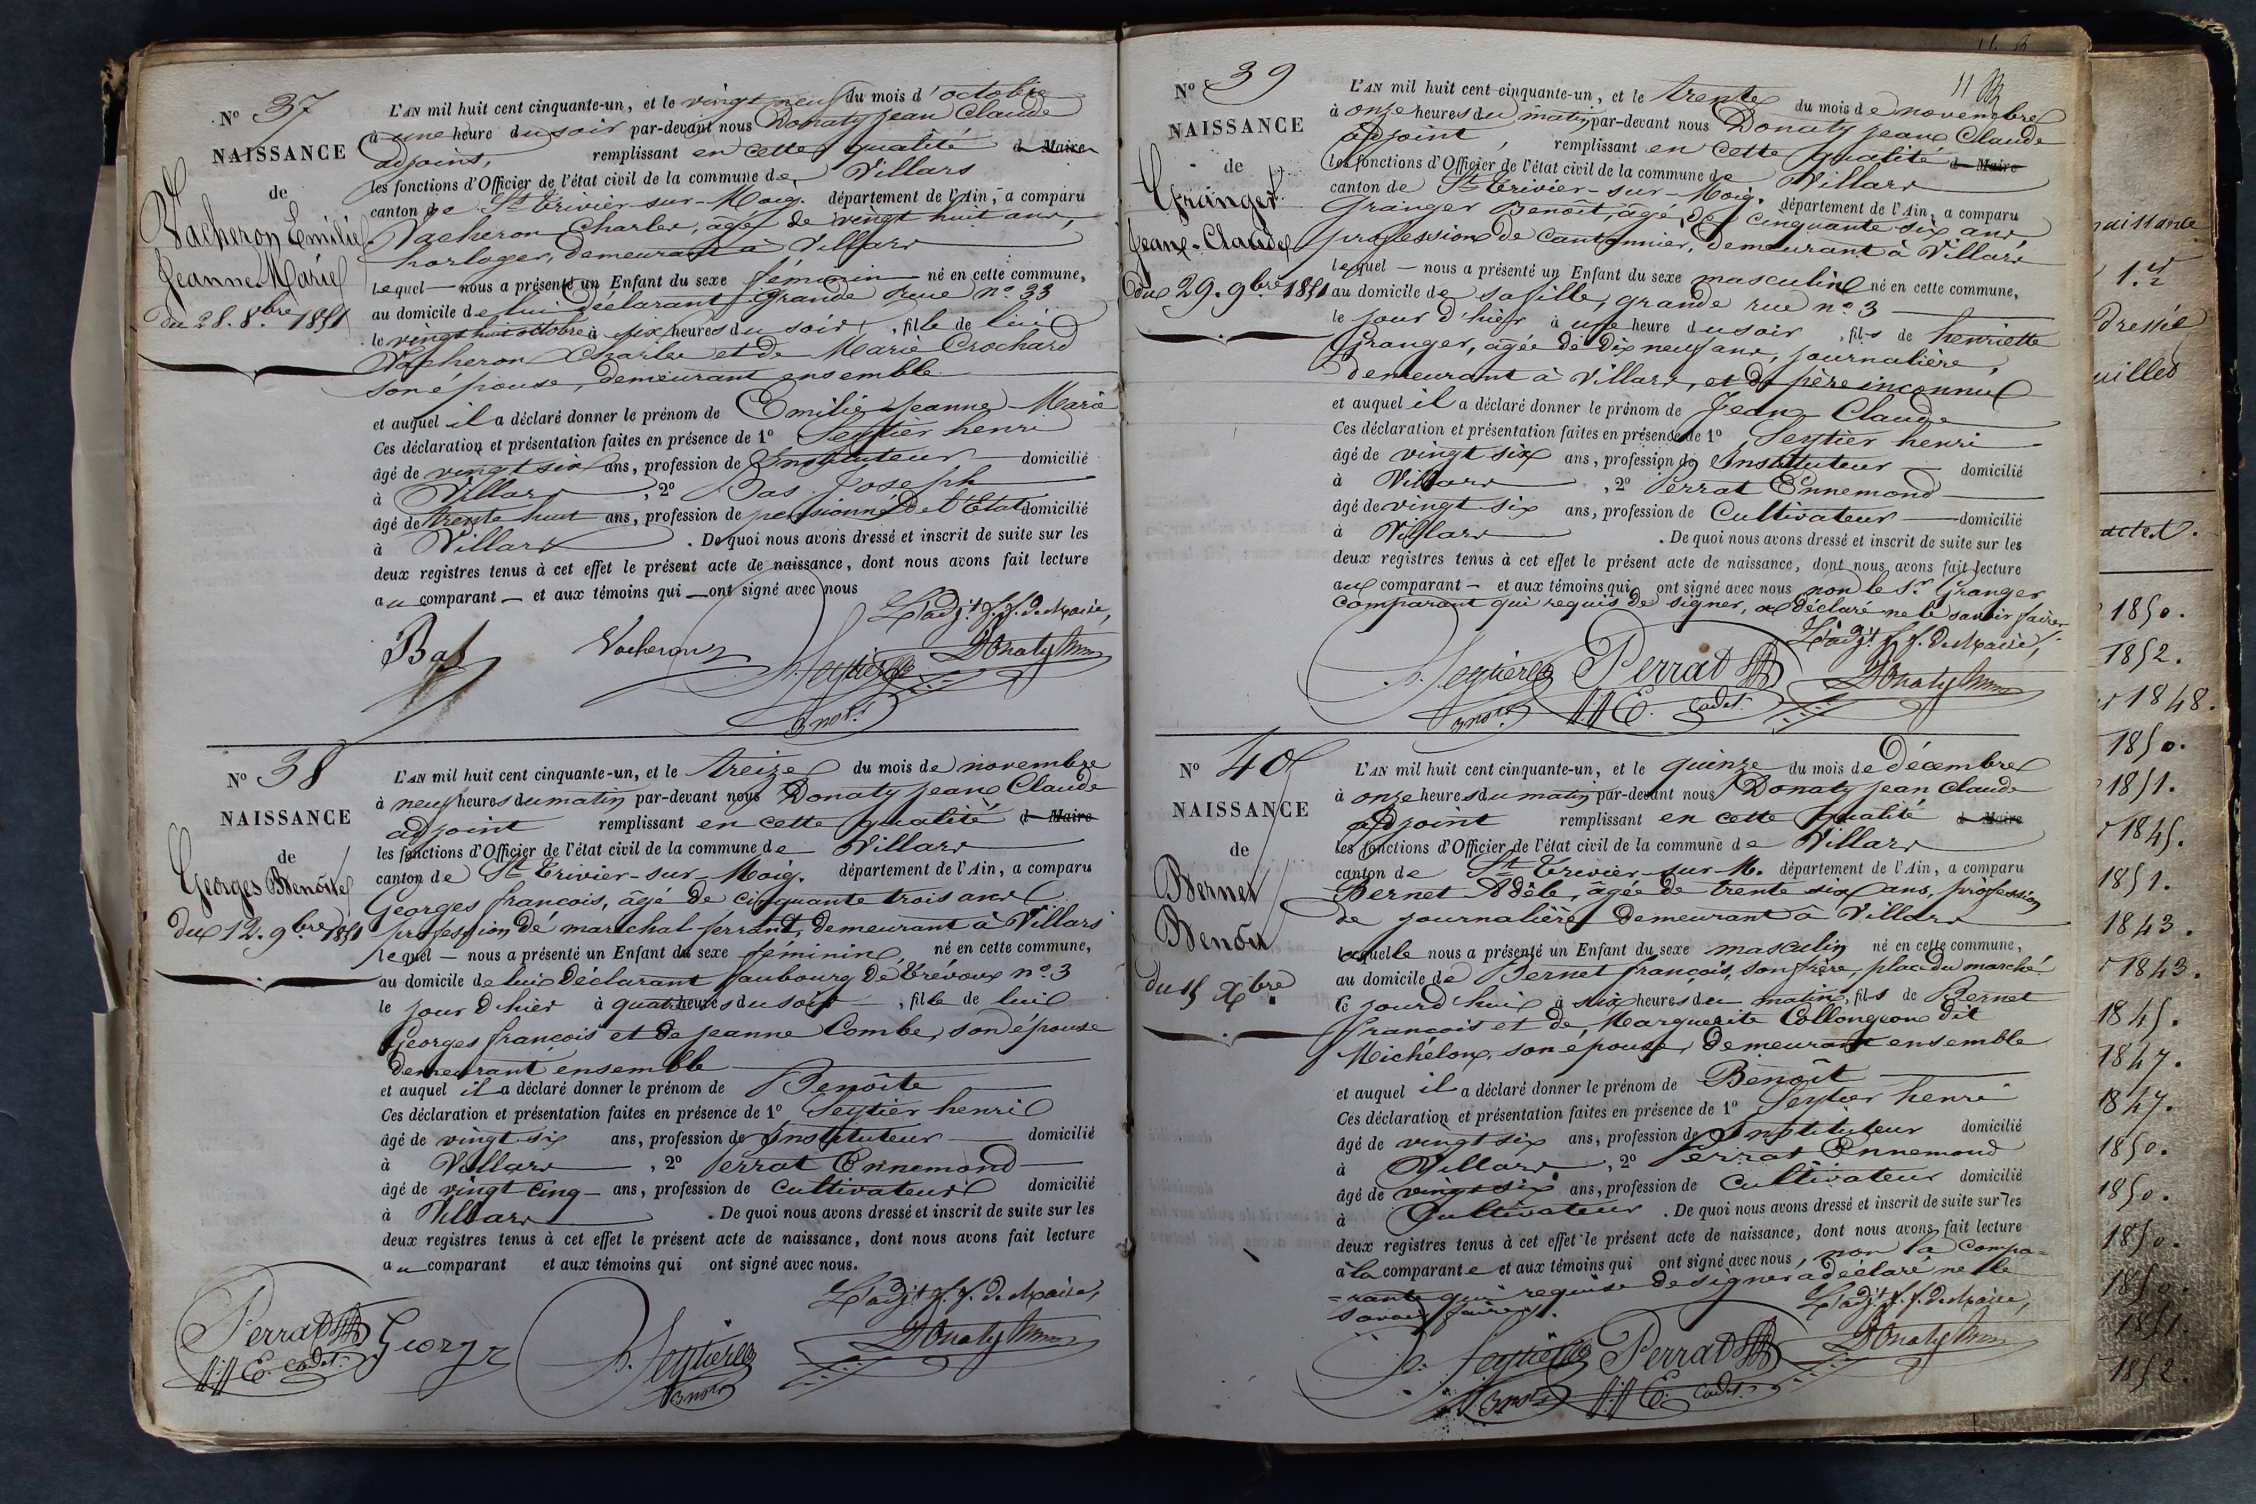 N° 37
NAISSANCE
de
Vacheron Emilie
Jeanne Marie
du 28. 8.bre 1851
L'AN mil huit cent cinquante-un, et le vingt neuf du mois d'octobre
à une heure du soir par-devant nous Donaty jean Claude
adjoint, remplissant en cette qualité d Maire
les fonctions d'Officier de l'état civil de la commune de Villars
canton de St Trivier-sur-Moig. département de l'Ain, a comparu
Vacheron Charles, âgé de vingt huit ans,
horloger, demeurant à Villars
lequel — nous a présenté un Enfant du sexe féminin né en cette commune,
au domicile de lui déclarant grande Rue n.° 33
le vingt huit octobre à six heures du soir, fille de lui
Vacheron Charles et de Marie Crochard
son épouse, demeurant ensemble
et auquel il a déclaré donner le prénom de Emilie Jeanne Marie
Ces déclaration et présentation faites en présence de 1° Seytier henri
âgé de vingt six ans, profession de Instituteur domicilié
à Villars, 2° Bas Joseph
âgé de trente huit ans, profession de pensionné de l'Etat domicilié
à Villars. De quoi nous avons dressé et inscrit de suite sur les
deux registres tenus à cet effet le présent acte de naissance, dont nous avons fait lecture
au comparant — et aux témoins qui — ont signé avec nous
L'adj.t f. f. de Maire,
Bas Vacheron h. Seytier Donaty
N° 38
NAISSANCE
de
Georges Benoîte
du 12. 9.bre 1851
L'AN mil huit cent cinquante-un, et le treize du mois de novembre
à neuf heures du matin par-devant nous Donaty jean Claude
adjoint remplissant en cette qualité d Maire
les fonctions d'Officier de l'état civil de la commune de Villars
canton de St Trivier-sur-Moig. département de l'Ain, a comparu
Georges françois, âgé de cinquante trois ans
profession de maréchal-ferrant, demeurant à Villars
lequel — nous a présenté un Enfant du sexe féminin, né en cette commune,
au domicile de lui déclarant faubourg de Trévoux n.° 3
le jour d'hier à quatre heures du soir, fille de lui
Georges françois et de jeanne Combe, son épouse
demeurant ensemble
et auquel il a déclaré donner le prénom de Benoîte
Ces déclaration et présentation faites en présence de 1° Seytier henri
âgé de vingt six ans, profession de Instituteur domicilié
à Villars, 2° Perrat Ennemond
âgé de vingt cinq ans, profession de cultivateur domicilié
à Villars. De quoi nous avons dressé et inscrit de suite sur les
deux registres tenus à cet effet le présent acte de naissance, dont nous avons fait lecture
au comparant et aux témoins qui ont signé avec nous.
L'adj.t f. f. de Maire,
Perrat E. cadet. Georges h. Seytier Donaty
11
N° 39
NAISSANCE
de
Granger
Jean-Claude
du 29. 9.bre 1851
L'AN mil huit cent cinquante-un, et le trente du mois de novembre
à onze heures du matin par-devant nous Donaty jean Claude
adjoint, remplissant en cette qualité d Maire
les fonctions d'Officier de l'état civil de la commune de Villars
canton de St Trivier-sur-Moig. département de l'Ain, a comparu
Granger Benoît, âgé de cinquante six ans
profession de cantonnier, demeurant à Villars
lequel — nous a présenté un Enfant du sexe masculin né en cette commune,
au domicile de sa fille, grande rue n.° 3
le jour d'hier à une heure du soir, fils de henriette
Granger, âgée de dix neuf ans, journalière,
demeurant à Villars, et de père inconnu
et auquel il a déclaré donner le prénom de Jean Claude
Ces déclaration et présentation faites en présence de 1° Seytier henri
âgé de vingt six ans, profession de Instituteur domicilié
à Villars, 2° Perrat Ennemond
âgé de vingt six ans, profession de Cultivateur domicilié
à Villars. De quoi nous avons dressé et inscrit de suite sur les
deux registres tenus à cet effet le présent acte de naissance, dont nous avons fait lecture
au comparant — et aux témoins qui ont signé avec nous non le S.r Granger
comparant qui requis de signer, a déclaré ne le savoir faire.
L'adj.t f. f. de Maire,
h. Seytier Perrat E. cadet. Donaty
N° 40
NAISSANCE
de
Bernet
Benoit
du 15 Xbre
L'AN mil huit cent cinquante-un, et le quinze du mois de décembre
à onze heures du matin par-devant nous Donaty jean Claude
adjoint remplissant en cette qualité d Maire
les fonctions d'Officier de l'état civil de la commune de Villars
canton de St Trivier-sur-M. département de l'Ain, a comparu
Bernet Adèle, âgée de trente six ans, profession
de journalière demeurant à Villars
lequelle nous a présenté un Enfant du sexe masculin né en cette commune,
au domicile de Bernet françois, son frère, place du marché
Ce jourd'hui à six heures du matin, fils de Bernet
françois et de Marguerite Collongeon dit
Michélon, son épouse, demeurant ensemble
et auquel il a déclaré donner le prénom de Benoît
Ces déclaration et présentation faites en présence de 1° Seytier henri
âgé de vingt six ans, profession de Instituteur domicilié
à Villars, 2° Perrat Ennemond
âgé de vingt six ans, profession de Cultivateur domicilié
à Cultivateur. De quoi nous avons dressé et inscrit de suite sur les
deux registres tenus à cet effet le présent acte de naissance, dont nous avons fait lecture
à la comparante et aux témoins qui ont signé avec nous, non la compa=
=rante qui requise de signer a déclaré ne le
savoir faire.
L'adj.t f. f. de Maire,
h. Seytier Perrat E. cadet. Donaty
naissance
1.er
dressée
uilles
actes.
1850.
1852.
1848.
1850.
1851.
1845.
1851.
1843.
1843.
1845.
1847.
1847.
1850.
1850.
1850.
1850.
1851.
1852.